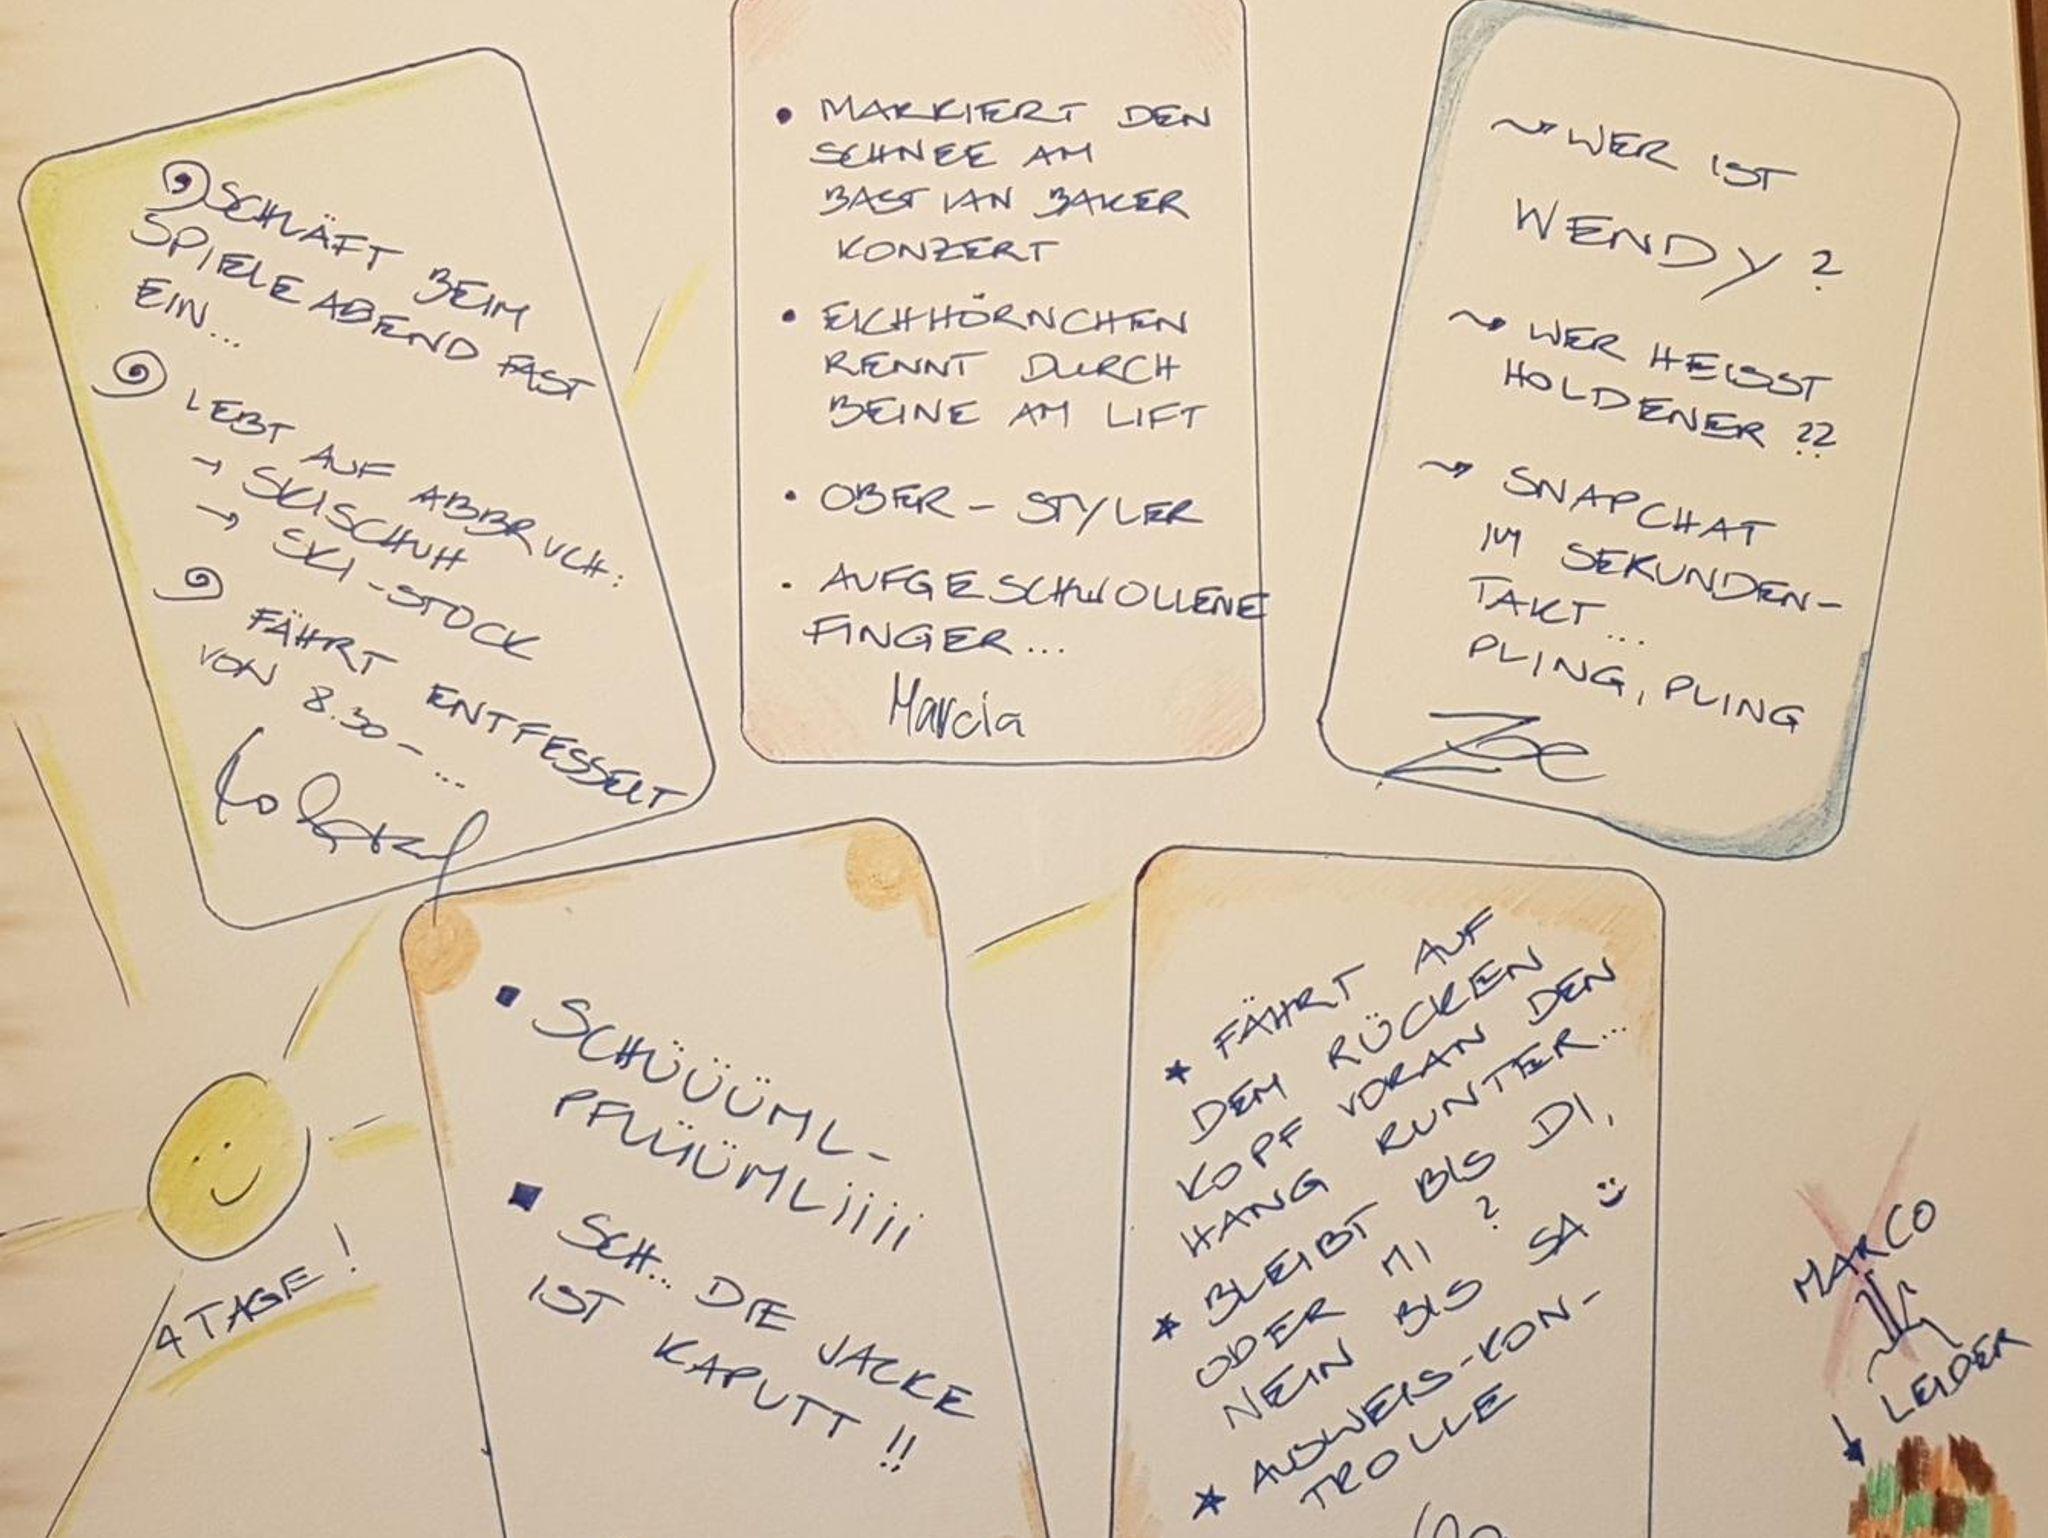 SCHLÄFT BEIM
SPIELEABEND FAST
EIN...
LEBT AUF ABBRUCH:
→ SKISCHUH
→ SKI-STOCK
FÄHRT ENTFESSELT
VON 8.30 - ...
• MARKIERT DEN
SCHNEE AM
BASTIAN BAKER
KONZERT
• EICHHÖRNCHEN
RENNT DURCH
BEINE AM LIFT
• OBER-STYLER
• AUFGESCHWOLLENE
FINGER...
Marcia
WER IST
WENDY?
WER HEISST
HOLDENER??
SNAPCHAT
IM SEKUNDEN-
TAKT...
PLING, PLING
Zoe
SCHÜÜÜML-
PFLÜÜÜMLiiii
SCH... DIE JACKE
IST KAPUTT!!
★ FÄHRT AUF
DEM RÜCKEN
KOPF VORAN DEN
HANG RUNTER...
★ BLEIBT BIS DI,
ODER MI?
NEIN BIS SA
★ AUSWEIS-KON-
TROLLE
4 TAGE!
MARCO
LEIDER